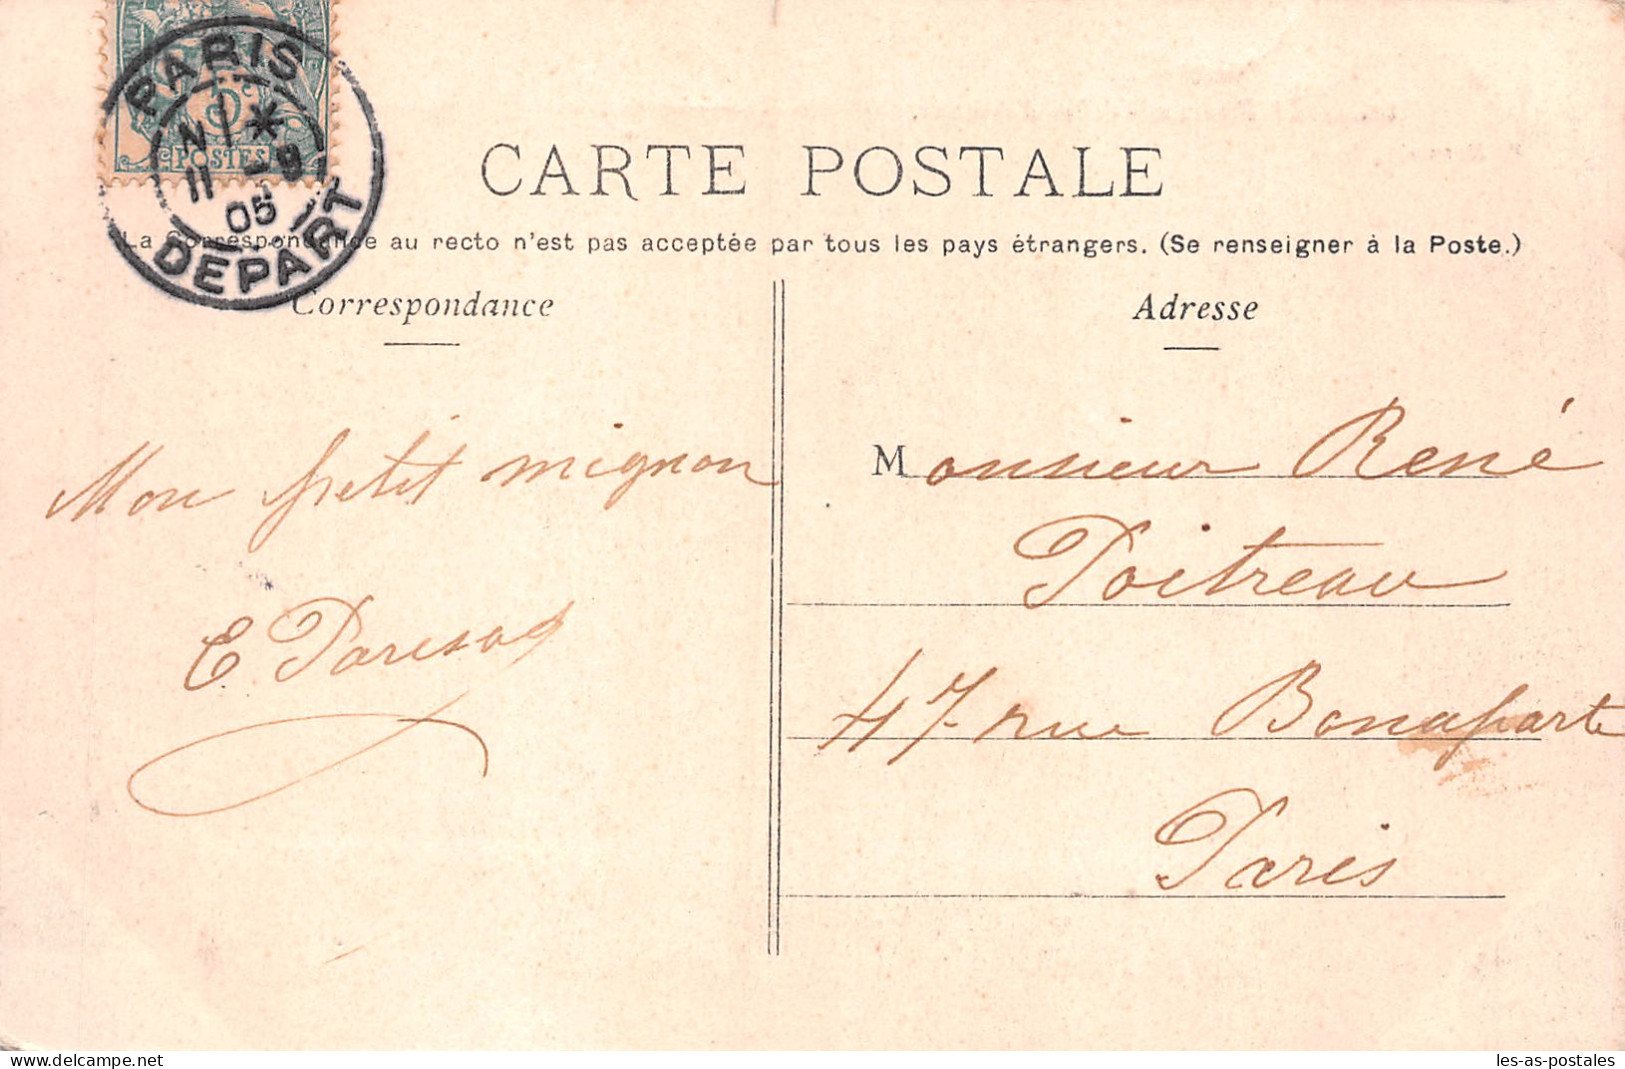 PARIS
11 - 9
05
DEPART
5c
POSTES
CARTE POSTALE
La Correspondance au recto n'est pas acceptée par tous les pays étrangers. (Se renseigner à la Poste.)
Correspondance
Mon petit mignon
E
Adresse
Monsieur René
Poitreau
47 rue Bonaparte
Paris
delcampe.net
les-as-postales